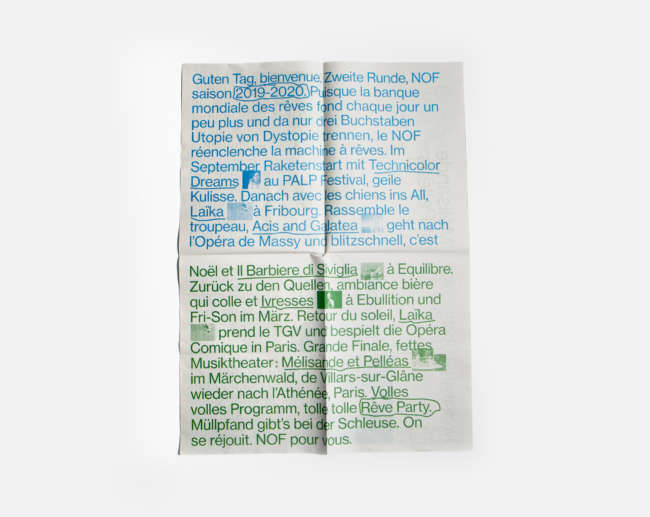 Guten Tag, bienvenue, Zweite Runde, NOF
saison 2019-2020. Puisque la banque
mondiale des rêves fond chaque jour un
peu plus und da nur drei Buchstaben
Utopie von Dystopie trennen, le NOF
réenclenche la machine à rêves. Im
September Raketenstart mit Technicolor
Dreams au PALP Festival, geile
Kulisse. Danach avec les chiens ins All,
Laïka à Fribourg. Rassemble le
troupeau, Acis and Galatea geht nach
l'Opéra de Massy und blitzschnell, c'est
Noël et Il Barbiere di Siviglia à Equilibre.
Zurück zu den Quellen, ambiance bière
qui colle et Ivresses à Ebullition und
Fri-Son im März. Retour du soleil, Laïka
prend le TGV und bespielt die Opéra
Comique in Paris. Grande Finale, fettes
Musiktheater: Mélisande et Pelléas
im Märchenwald, de Villars-sur-Glâne
wieder nach l'Athénée, Paris. Volles
volles Programm, tolle tolle Rêve Party.
Müllpfand gibt's bei der Schleuse. On
se réjouit. NOF pour vous.